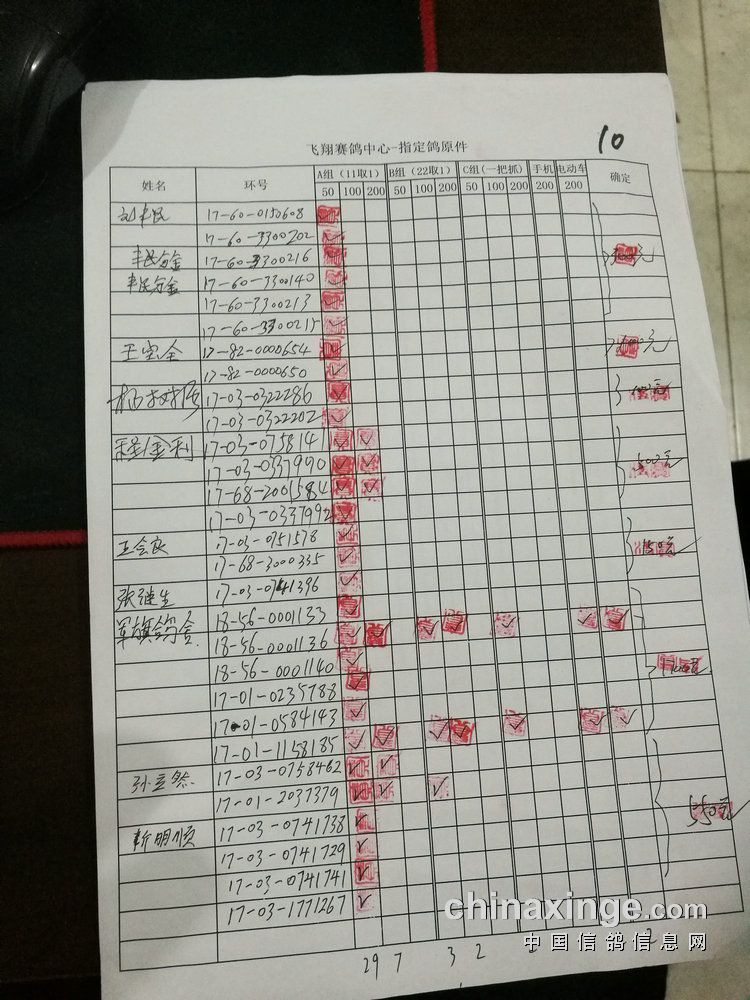 10
飞翔赛鸽中心-指定鸽原件
姓名 环号 A组（11取1） B组（22取1） C组(一把抓) 手机 电动车 确定
50 100 200 50 100 200 50 100 200 200 200
17-60-0150608
17-60-3300202
17-60-3300216
17-60-3300140
17-60-3300213
17-60-3300215
17-82-0000654
17-82-0000650
17-03-0322286
17-03-0322202
17-03-075814
17-03-0337990
17-68-2001584
17-03-0337992
王会良 17-03-0751578
17-68-3000335
张继生 17-03-0741396
军旗鸽舍 18-56-0001133
18-56-0001136
18-56-0001140
17-01-0235788
17-01-0584143
17-01-1158185
17-03-0758462
17-01-2037379
靳明顺 17-03-0741738
17-03-0741729
17-03-0741741
17-03-1771267
550元
29 7 3 2
chinaxinge.com
中国信鸽信息网